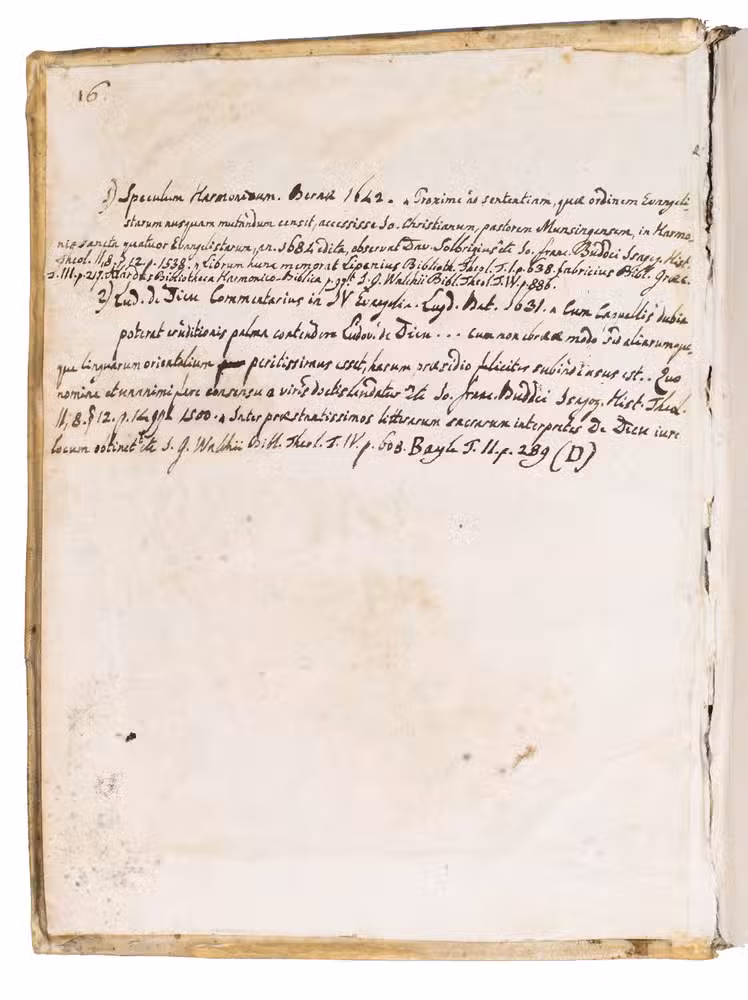 16.
1) Speculum Harmonicum. Bernæ 1642. „Proxime ad sententiam, quæ ordinem Evangeli-
starum nusquam mutandum censit, accessisse Jo. Christianum, pastorem Munsingensem, in Harmo-
nia sancta quatuor Evangelistarum, an. 1684 edita, observat Dav. Solbrigius" ita Jo. Franc. Buddei Isagog. Hist.
Theol. II, 8. § 12. p. 1538. „Librum hunc memorat Lipenius Biblioth. Theol. T. I. p. 638. Fabricius Bibl. Græc.
T. III. p. 217. Hardts Bibliotheca Harmonico-Biblia p. 99. J. G. Walchii Bibl. Theol. T. IV. p. 886.
2) Lud. de Dieu Commentarius in IV Evangelia. Lugd. Bat. 1631. „Cum dubia
poterat eruditionis palma contendere Ludov. de Dieu ... cum non ebrææ modo sed aliarumque,
que linguarum orientalium peritissimus esset, harum præsidio feliciter subinde usus est. . Quo
nomine et unanimi fere consensu a viris doctis laudatur" ita Jo. Franc. Buddei Isagog. Hist. Theol.
II, 8. § 12. p. 1499 1500. „Inter præstantissimos litterarum sacrarum interpretes De Dieu iure
locum obtinet" ita J. G. Walchii Bibl. Theol. T. IV. p. 608. Bayle T. II. p. 289 (D)